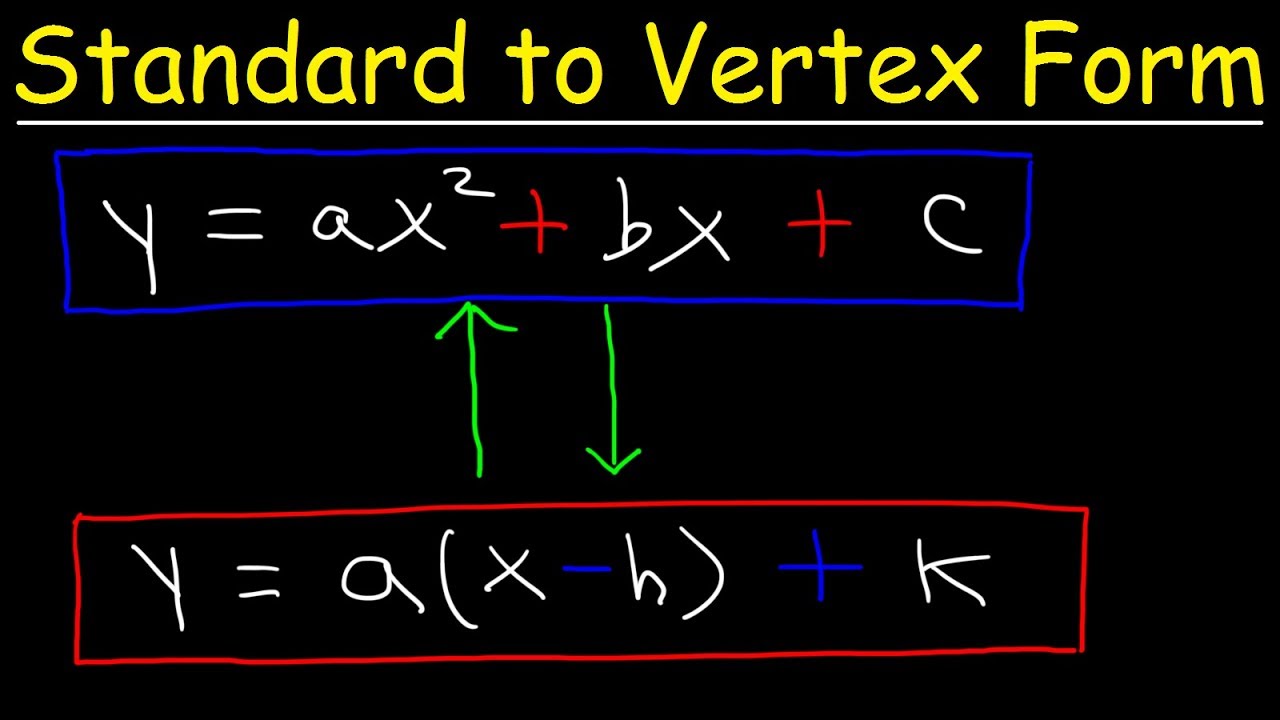 Standard to Vertex Form
y = ax² + bx + c
y = a(x - h) + k